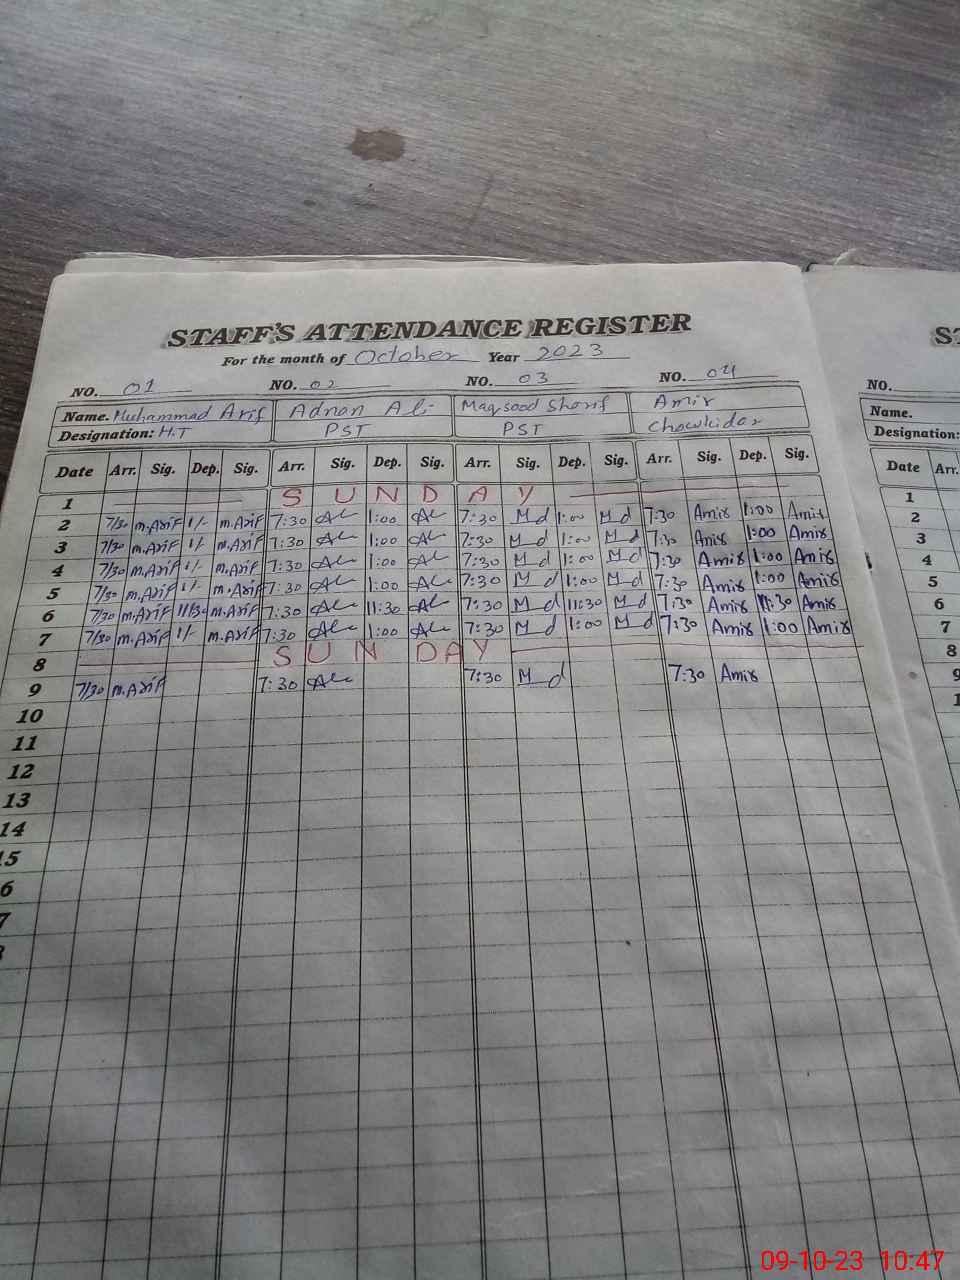 STAFF'S ATTENDANCE REGISTER
For the month of October Year 2023
NO. 01 NO. 02 NO. 03 NO. 04
Name. Muhammad Arif Adnan Ali Maqsood Sharif Amir
Designation: H.T PST PST Chowkidar
Date Arr. Sig. Dep. Sig. Arr. Sig. Dep. Sig. Arr. Sig. Dep. Sig. Arr. Sig. Dep. Sig.
1 SUNDAY
2 7/30 M.Arif 1/- M.Arif 7:30 Ali 1:00 Ali 7:30 Md 1:00 Md 7:30 Amir 1:00 Amir
3 7/30 M.Arif 1/- M.Arif 7:30 Ali 1:00 Ali 7:30 Md 1:00 Md 7:30 Amir 1:00 Amir
4 7/30 M.Arif 1/- M.Arif 7:30 Ali 1:00 Ali 7:30 Md 1:00 Md 7:30 Amir 1:00 Amir
5 7/30 M.Arif 1/- M.Arif 7:30 Ali 1:00 Ali 7:30 Md 1:00 Md 7:30 Amir 1:00 Amir
6 7/30 M.Arif 11/30 M.Arif 7:30 Ali 11:30 Ali 7:30 Md 11:30 Md 7:30 Amir 11:30 Amir
7 7/30 M.Arif 1/- M.Arif 7:30 Ali 1:00 Ali 7:30 Md 1:00 Md 7:30 Amir 1:00 Amir
8 SUNDAY
9 7/30 M.Arif 7:30 Ali 7:30 Md 7:30 Amir
10
11
12
13
14
15
6
7
ST
NO.
Name.
Designation:
Date Arr.
1
2
3
4
5
6
7
8
9
1
09-10-23 10:47